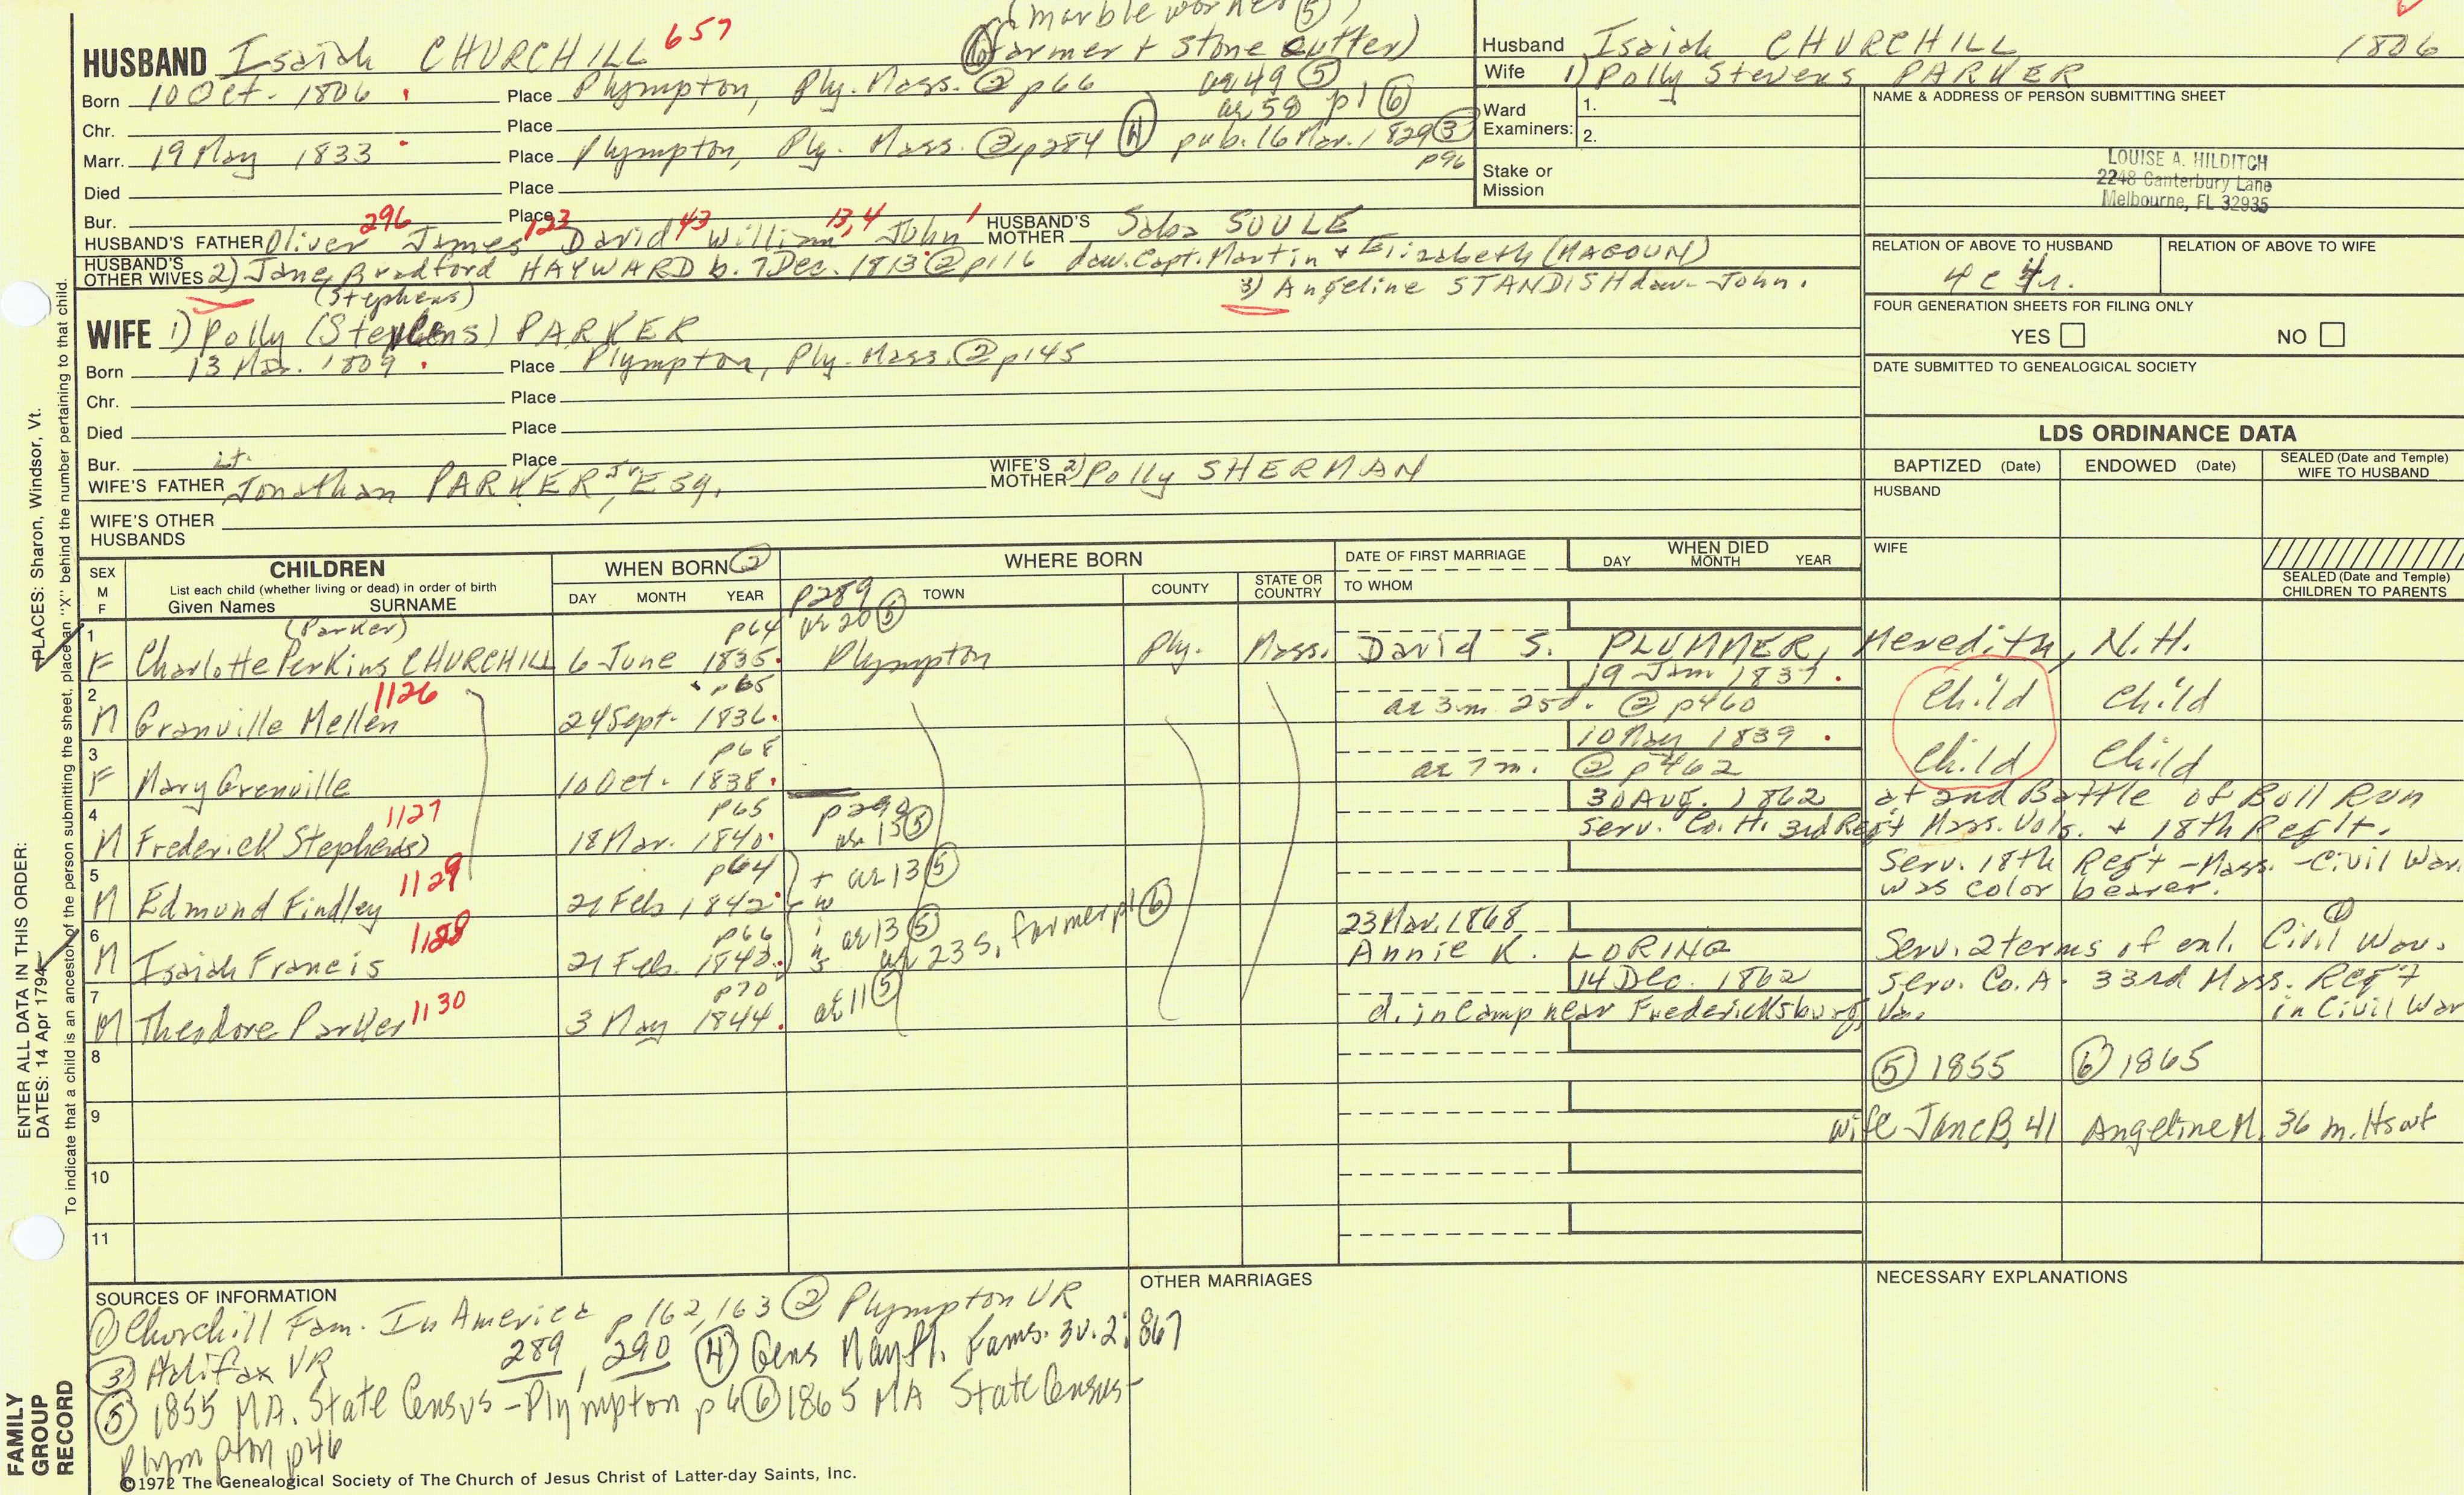 (marble worker ⑤)
HUSBAND Isaiah CHURCHILL 657 ⑥ farmer + stone cutter)
Born 10 Oct. 1806 Place Plympton, Ply. Mass. ② p66 ae 49 ⑤
ae 58 p1 ⑥
Chr. Place
Marr. 19 May 1833 Place Plympton, Ply. Mass. ② p284 ④ pub. 16 Mar. 1829 ③ p96
Died Place
Bur. Place
HUSBAND'S FATHER Oliver 296 James 122 David 43 William 13,4 John 1 HUSBAND'S MOTHER Saba SOULE
HUSBAND'S OTHER WIVES 2) Jane Bradford HAYWARD b. 7 Dec. 1813 ② p116 dau. Capt. Martin + Elizabeth (MAGOUN)
3) Angeline STANDISH dau. John.
(Stephens)
WIFE 1) Polly (Stephens) PARKER
Born 13 Mar. 1809 Place Plympton, Ply. Mass. ② p145
Chr. Place
Died Place
Bur. Place
WIFE'S FATHER Lt. Jonathan PARKER, Jr, Esq. WIFE'S MOTHER 2) Polly SHERMAN
WIFE'S OTHER HUSBANDS
Husband Isaiah CHURCHILL 1806
Wife 1) Polly Stevens PARKER
Ward Examiners: 1.
2.
Stake or Mission
NAME & ADDRESS OF PERSON SUBMITTING SHEET
LOUISE A. HILDITCH
2248 Canterbury Lane
Melbourne, FL 32935
RELATION OF ABOVE TO HUSBAND RELATION OF ABOVE TO WIFE
4 c 4r.
FOUR GENERATION SHEETS FOR FILING ONLY
YES NO
DATE SUBMITTED TO GENEALOGICAL SOCIETY
LDS ORDINANCE DATA
BAPTIZED (Date) ENDOWED (Date) SEALED (Date and Temple) WIFE TO HUSBAND
HUSBAND
WIFE
SEALED (Date and Temple) CHILDREN TO PARENTS
SEX M F CHILDREN WHEN BORN ② WHERE BORN DATE OF FIRST MARRIAGE WHEN DIED
List each child (whether living or dead) in order of birth
Given Names SURNAME DAY MONTH YEAR TOWN COUNTY STATE OR COUNTRY TO WHOM DAY MONTH YEAR
p289
(Parker) p64 ae 20 ⑤
1 F Charlotte Perkins CHURCHILL 6 June 1835. Plympton Ply. Mass. David S. PLUMMER, Meredith, N.H.
1126 p65 19 Jan 1837.
2 M Granville Mellen 24 Sept. 1836. ae 3 m 25d. ② p460 Child Child
p68 10 May 1839.
3 F Mary Grenville 10 Oct. 1838. ae 7 m. ② p462 Child Child
1127 p65 p290 30 Aug. 1862 at 2nd Battle of Boll Run
4 M Frederick Stephen(s) 18 Mar. 1840. ae 15 ⑤ Serv. Co. H. 3rd Reg't Mass. Vols. + 18th Reg't.
1129 p64 + ae 13 ⑤ Serv. 18th Reg't - Mass. - Civil War
5 M Edmund Findley 21 Feb. 1842. was color bearer.
1128 p66 ae 13 ⑤ 23 Mar. 1868 ①
6 M Isaiah Francis 21 Feb. 1842. ae 23 S. farmer p1 ⑥ Annie K. LORING Serv. 2 terms of enl. Civil War.
1130 p70 ae 11 ⑤ 14 Dec. 1862 Serv. Co. A. 33rd Mass. Reg't
7 M Theodore Parker 3 May 1844. d. in Camp near Fredericksburg, Va. in Civil War
8 ⑤ 1855 ⑥ 1865
9 wife Jane B. 41 Angeline M. 36 m.
10
11
SOURCES OF INFORMATION
① Churchill Fam. In America p 162, 163 ② Plympton VR
③ Halifax VR 289, 290 ④ Gens Mayfl. Fams. 3 v. 2; 867
⑤ 1855 MA. State Census - Plympton p 6 ⑥ 1865 MA State Census -
Plympton p46
OTHER MARRIAGES
NECESSARY EXPLANATIONS
©1972 The Genealogical Society of The Church of Jesus Christ of Latter-day Saints, Inc.
PLACES: Sharon, Windsor, Vt.
ENTER ALL DATA IN THIS ORDER:
DATES: 14 Apr 1794
To indicate that a child is an ancestor of the person submitting the sheet, place an "X" behind the number pertaining to that child.
FAMILY GROUP RECORD